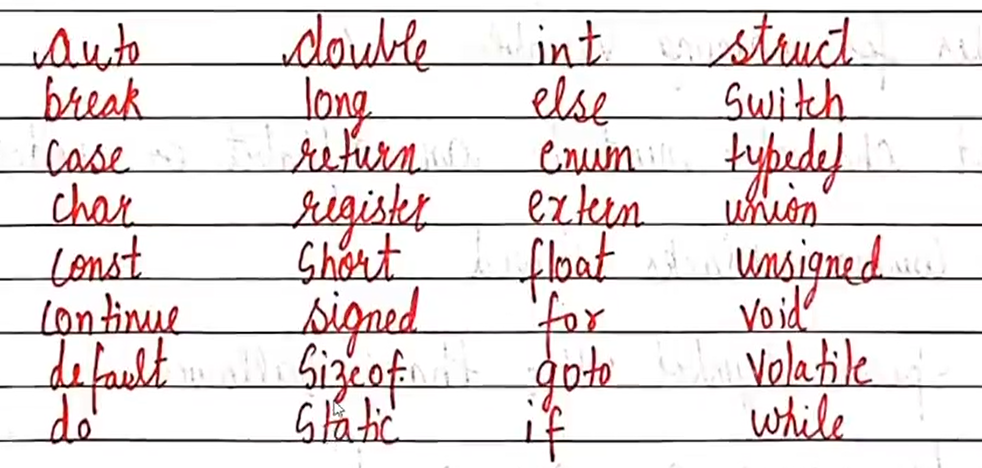 auto double int struct
break long else switch
case return enum typedef
char register extern union
const short float unsigned
continue signed for void
default sizeof goto volatile
do static if while